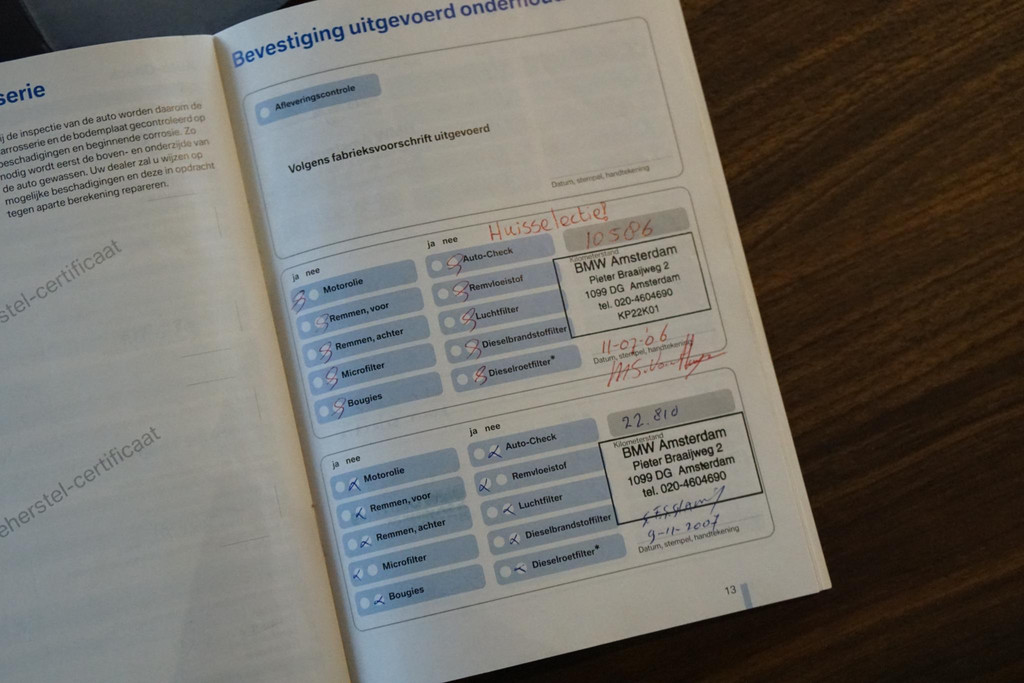 serie
ij de inspectie van de auto worden daarom de
arrosserie en de bodemplaat gecontroleerd op
beschadigingen en beginnende corrosie. Zo
nodig wordt eerst de boven- en onderzijde van
de auto gewassen. Uw dealer zal u wijzen op
mogelijke beschadigingen en deze in opdracht
tegen aparte berekening repareren.
stel-certificaat
eherstel-certificaat
Bevestiging uitgevoerd onderhoud
Afleveringscontrole
Volgens fabrieksvoorschrift uitgevoerd
Datum, stempel, handtekening
Huisselectie!
ja nee
Motorolie
Remmen, voor
Remmen, achter
Microfilter
Bougies
ja nee
Auto-Check
Remvloeistof
Luchtfilter
Dieselbrandstoffilter
Dieselroetfilter*
10586
Kilometerstand
BMW Amsterdam
Pieter Braaijweg 2
1099 DG Amsterdam
tel. 020-4604690
KP22K01
11-07-06
Datum, stempel, handtekening
ja nee
Motorolie
Remmen, voor
Remmen, achter
Microfilter
Bougies
ja nee
Auto-Check
Remvloeistof
Luchtfilter
Dieselbrandstoffilter
Dieselroetfilter*
22.810
Kilometerstand
BMW Amsterdam
Pieter Braaijweg 2
1099 DG Amsterdam
tel. 020-4604690
9-11-2007
Datum, stempel, handtekening
13